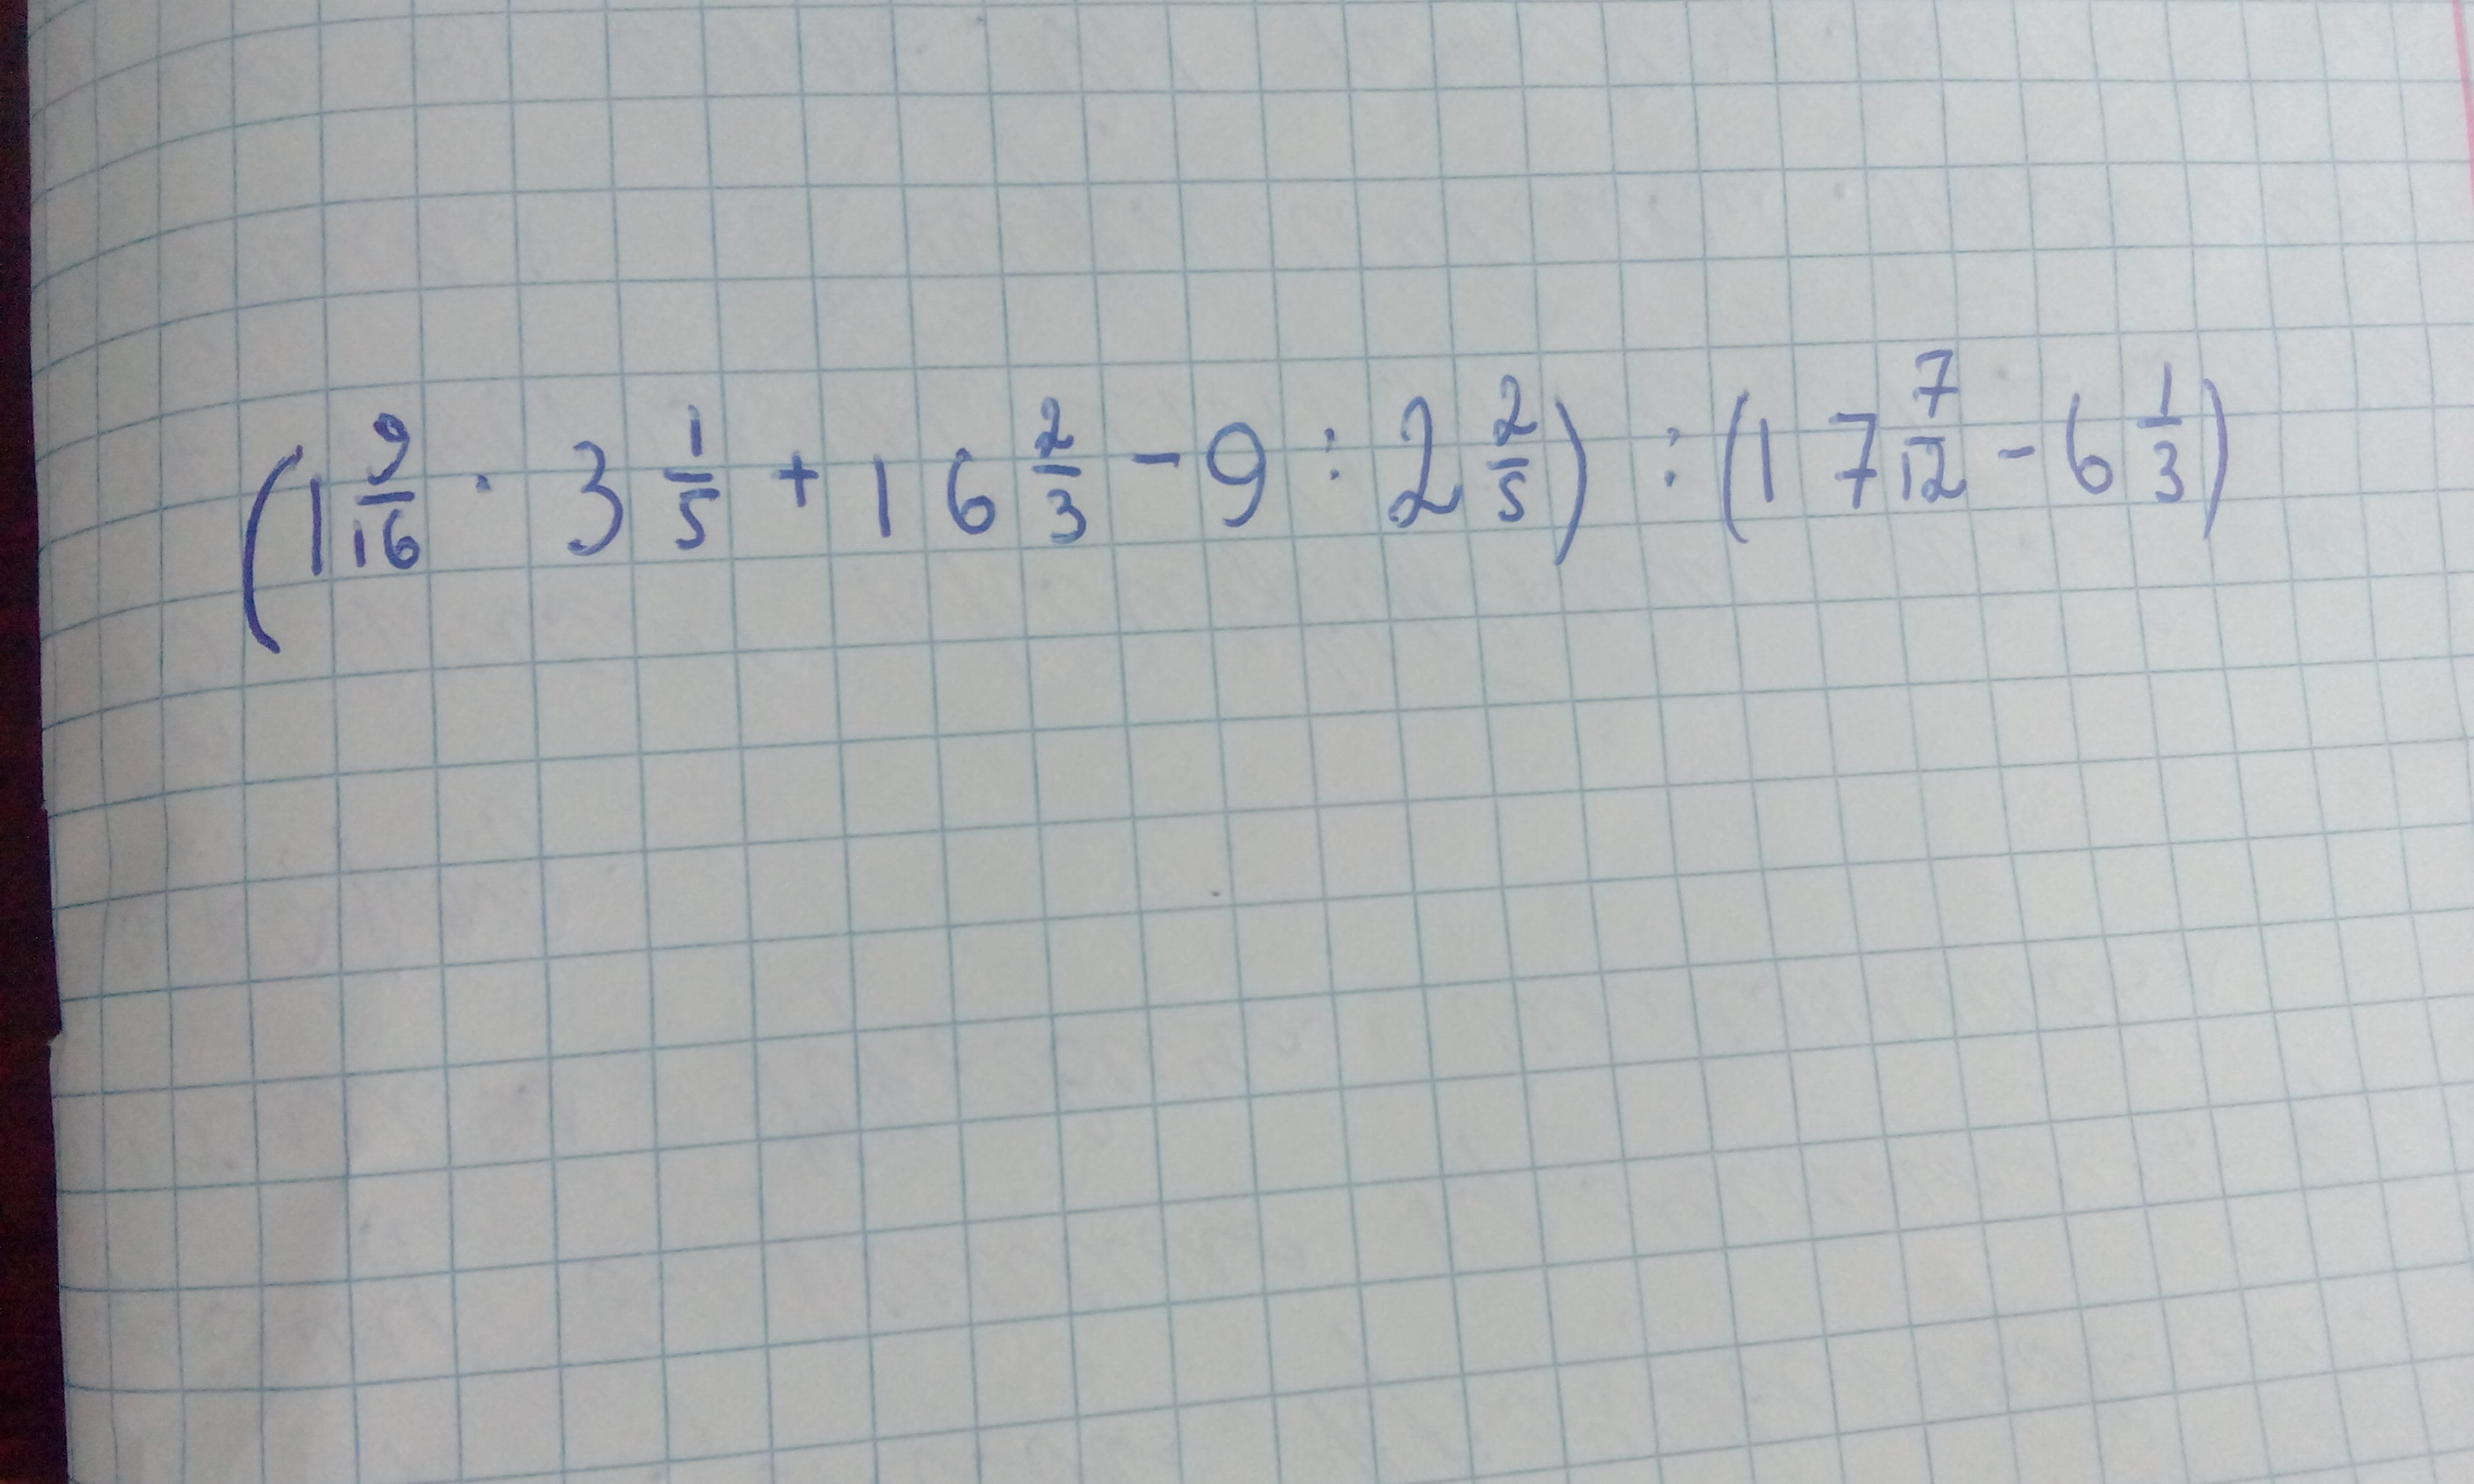 (1 9/16 · 3 1/5 + 16 2/3 - 9 : 2 2/5) : (17 7/12 - 6 1/3)